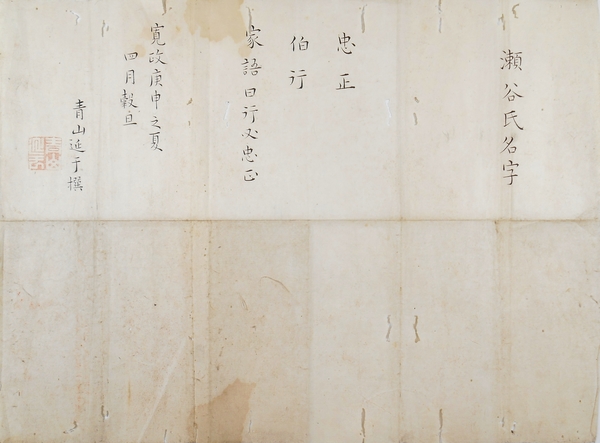 瀬谷氏名字
忠正
伯行
家語曰行必忠正
寛政庚申之夏
四月穀旦
青山延于撰